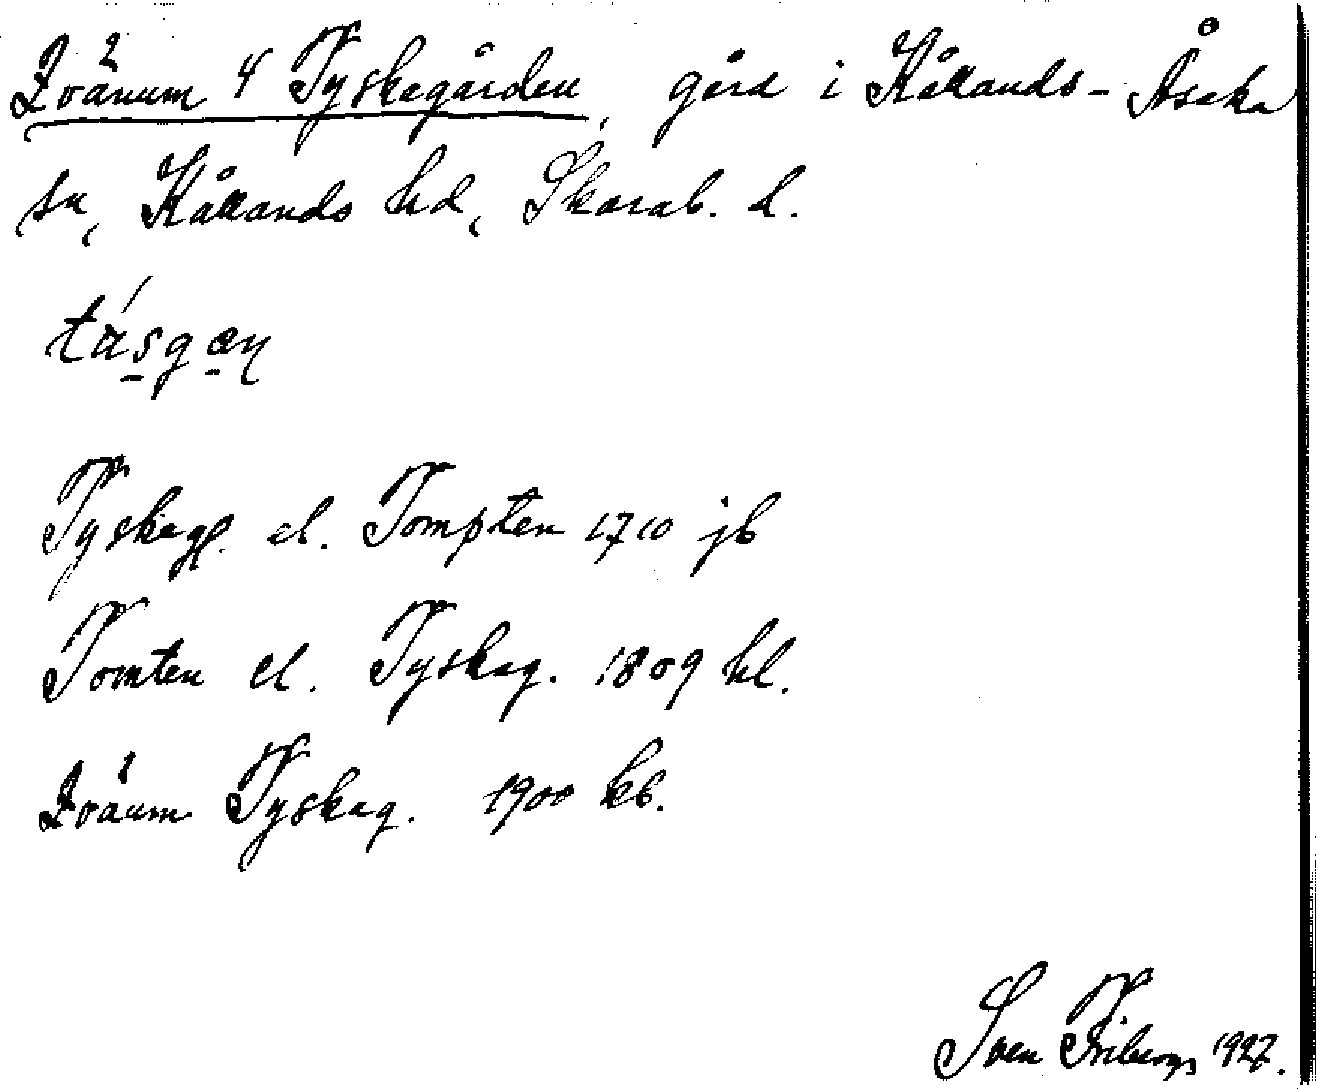 Dvänum 4 Tyskegården, gård i Kållands-Åsaka
sn, Kållands hd, Skarab. l.
tásgæn
Tyskeg. el. Tompten 1710 jb
Tomten el. Tyskeg. 1809 hl.
Dvänm Tyskeg. 1900 kb.
Sven Friberg 1927.